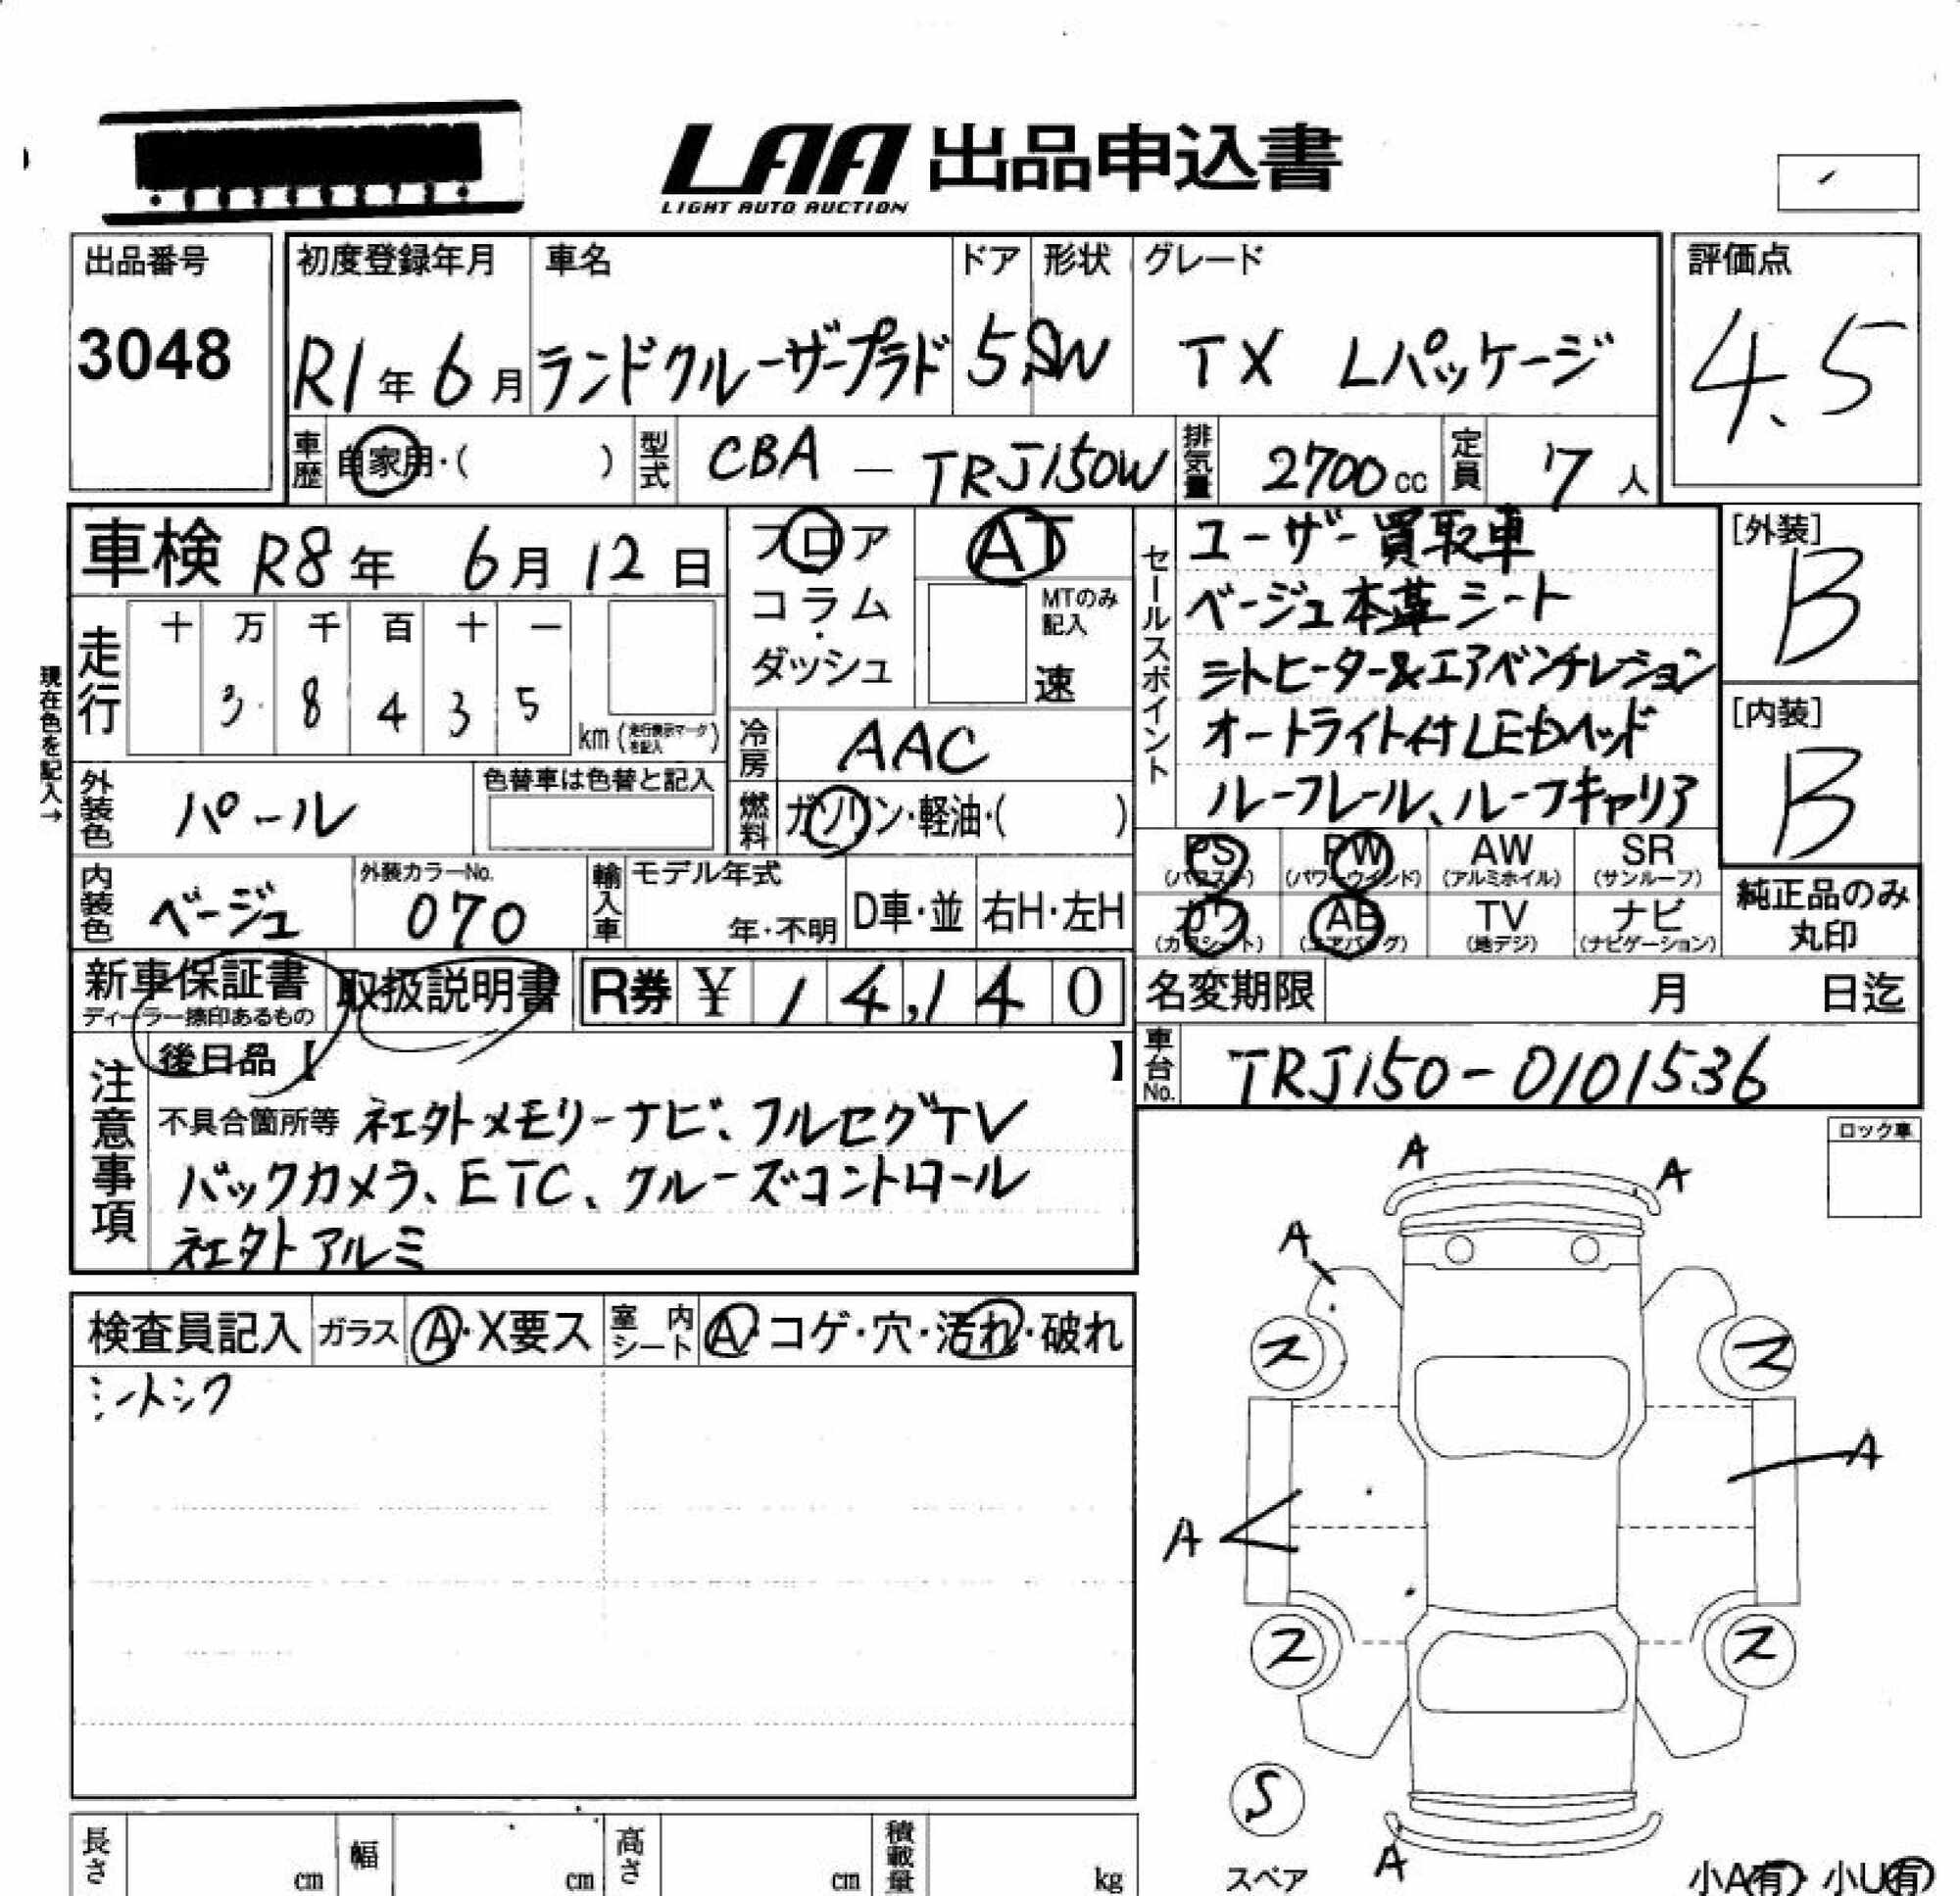 LAA 出品申込書
LIGHT AUTO AUCTION
出品番号
3048
初度登録年月 車名 ドア 形状 グレード
R1年 6月 ランドクルーザープラド 5 SW TX Lパッケージ
評価点
4.5
車歴 自家用・( ) 型式 CBA - TRJ150W 排気量 2700cc 定員 7人
車検 R8年 6月 12日
フロア
コラム
・
ダッシュ
AT
MTのみ
記入
速
走行
十 万 千 百 十 一
3 8 4 3 5
km (走行表示マークを記入)
現在色を記入→
冷房 AAC
外装色 パール
色替車は色替と記入
燃料 ガソリン・軽油・( )
内装色 ベージュ
外装カラーNo.
070
輸入車 モデル年式
年・不明 D車・並 右H・左H
セールスポイント
ユーザー買取車
ベージュ本革シート
シートヒーター&エアベンチレーション
オートライト付LEDヘッド
ルーフレール、ルーフキャリア
[外装]
B
[内装]
B
PS PW AW SR
(パワステ) (パワーウインド) (アルミホイル) (サンルーフ)
カワ AB TV ナビ
(カワシート) (エアバッグ) (地デジ) (ナビゲーション)
純正品のみ
丸印
新車保証書
ディーラー捺印あるもの
取扱説明書
R券 ¥ 14,140
名変期限 月 日迄
車台No. TRJ150-0101536
注意事項
後日品【 】
不具合箇所等 社外メモリーナビ、フルセグTV
バックカメラ、ETC、クルーズコントロール
社外アルミ
ロック車
検査員記入 ガラス A・X要ス 室内シート A・コゲ・穴・汚れ・破れ
A
A
A
ス
ス
A
A
ス
ス
S
スペア
A
小A有 小U有
長さ cm 幅 cm 高さ cm 積載量 kg